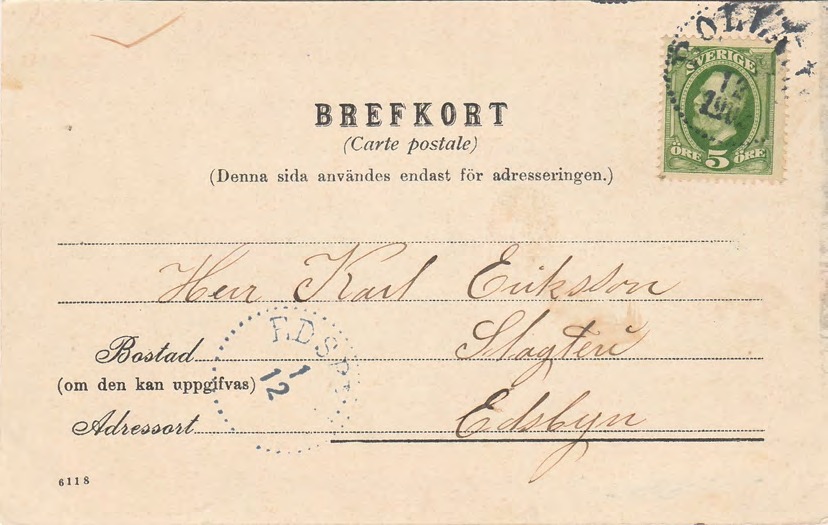 BREFKORT
(Carte postale)
(Denna sida användes endast för adresseringen.)
SVERIGE
ÖRE 5 ÖRE
12
Herr Karl Eriksson
Slagteri
Bostad
(om den kan uppgifvas)
Edsbyn
Adressort
EDSB
1
12
6118